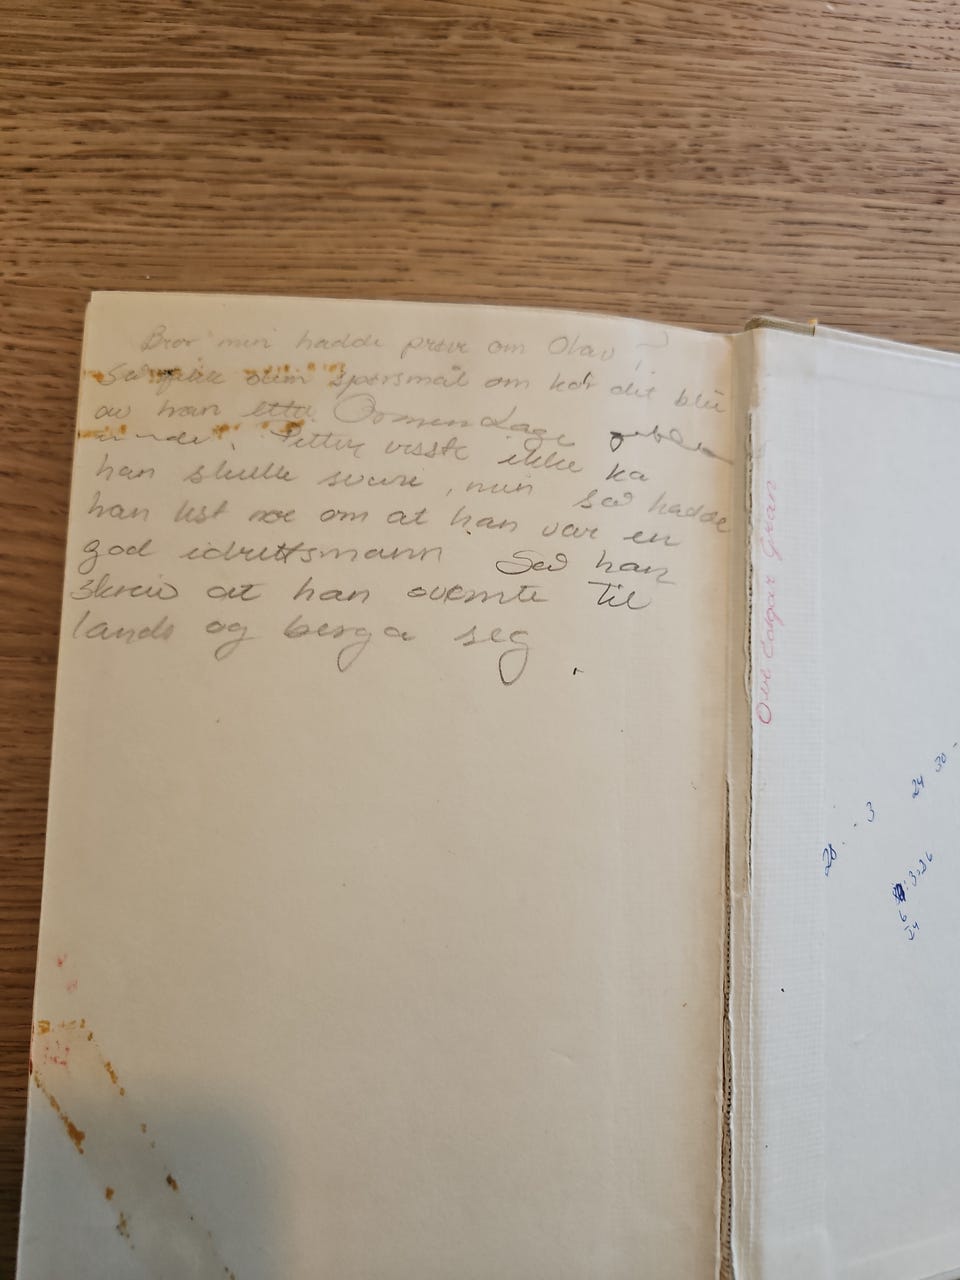 Bror min hadde prøve om Olav
Så fikk dem spørsmål om kår det blei
av han etter Ormen Lange
Petter visste ikke ka
han skulle svare, men så hadde
han lest noe om at han var en
god idrettsmann Så han
skreiv at han svømte til
lands og berga seg.
Ove Edgar Gran
28. . 3
24 30 -
3.36
6
24